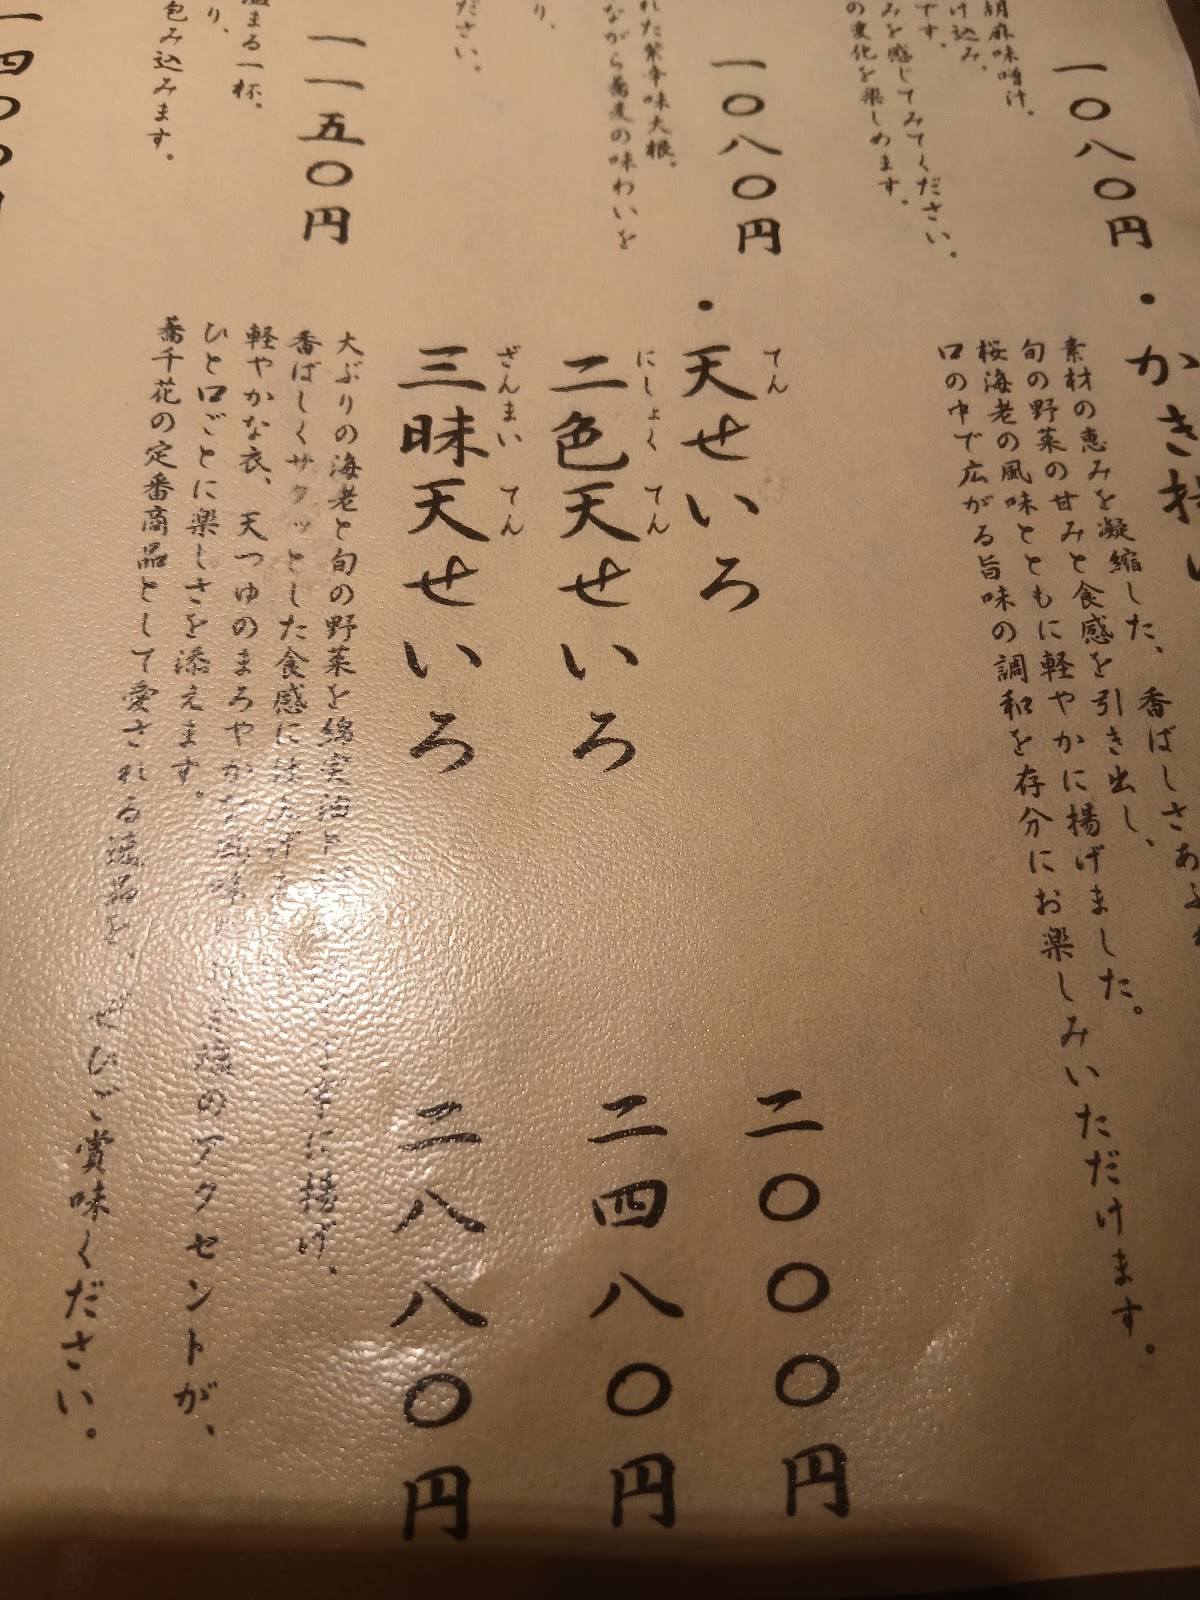 胡麻味噌汁。
け込み、
です。
みを感じてみてください。
の変化を楽しめます。
一〇八〇円
れた紫辛味大根。
ながら蕎麦の味わいを
り、
一〇八〇円
ださい。
温まる一杯。
り、
包み込みます。
一一五〇円
一四〇〇円
・かき揚
香ばしさあふれ
素材の恵みを凝縮した、
旬の野菜の甘みと食感を引き出し、
桜海老の風味とともに軽やかに揚げました。
口の中で広がる旨味の調和を存分にお楽しみいただけます。
・天せいろ
てん
二〇〇〇円
二色天せいろ
にしょくてん
二四八〇円
三昧天せいろ
ざんまいてん
二八八〇円
大ぶりの海老と旬の野菜を綿実油と
丁寧に揚げ、
香ばしくサクッとした食感に
軽やかな衣、天つゆのまろやかな風味
塩のアクセントが、
ひと口ごとに楽しさを添えます。
蕎千花の定番商品として愛される逸品を、ぜひご賞味ください。